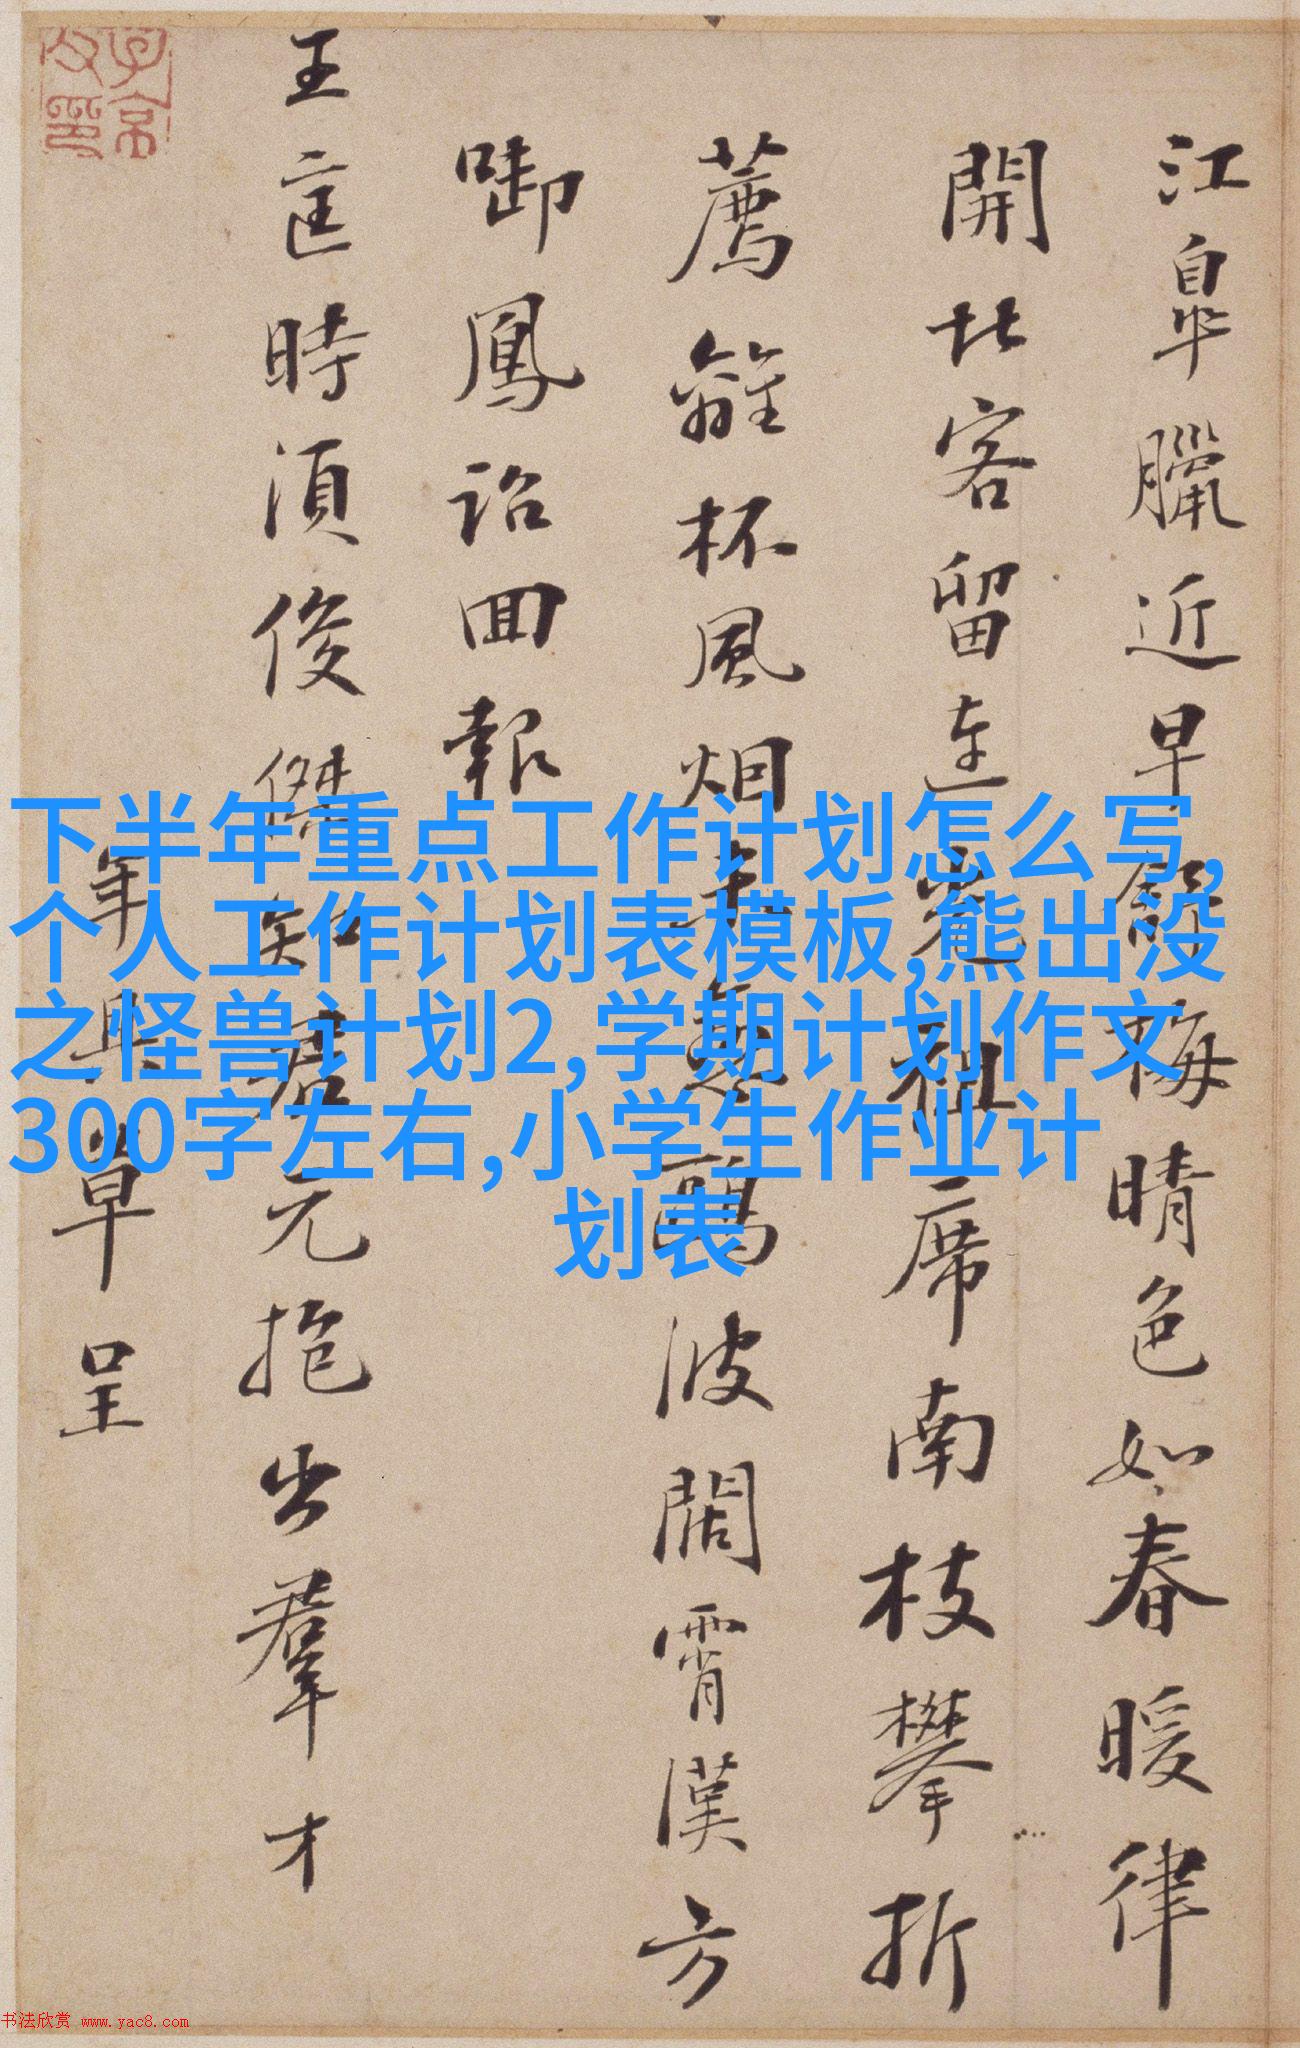 江皐臘近早舒梅晴色如春暖律
開北客留連祖席南枝攀折
薦離杯風烟鷗波闊霄漢方
啣鳳詔囬報
王匡時須俊傑知君元抱出羣才
年草呈
子京父印
下半年重点工作计划怎么写,
个人工作计划表模板,熊出没
之怪兽计划2,学期计划作文
300字左右,小学生作业计
划表
书法欣赏 www.yac8.com